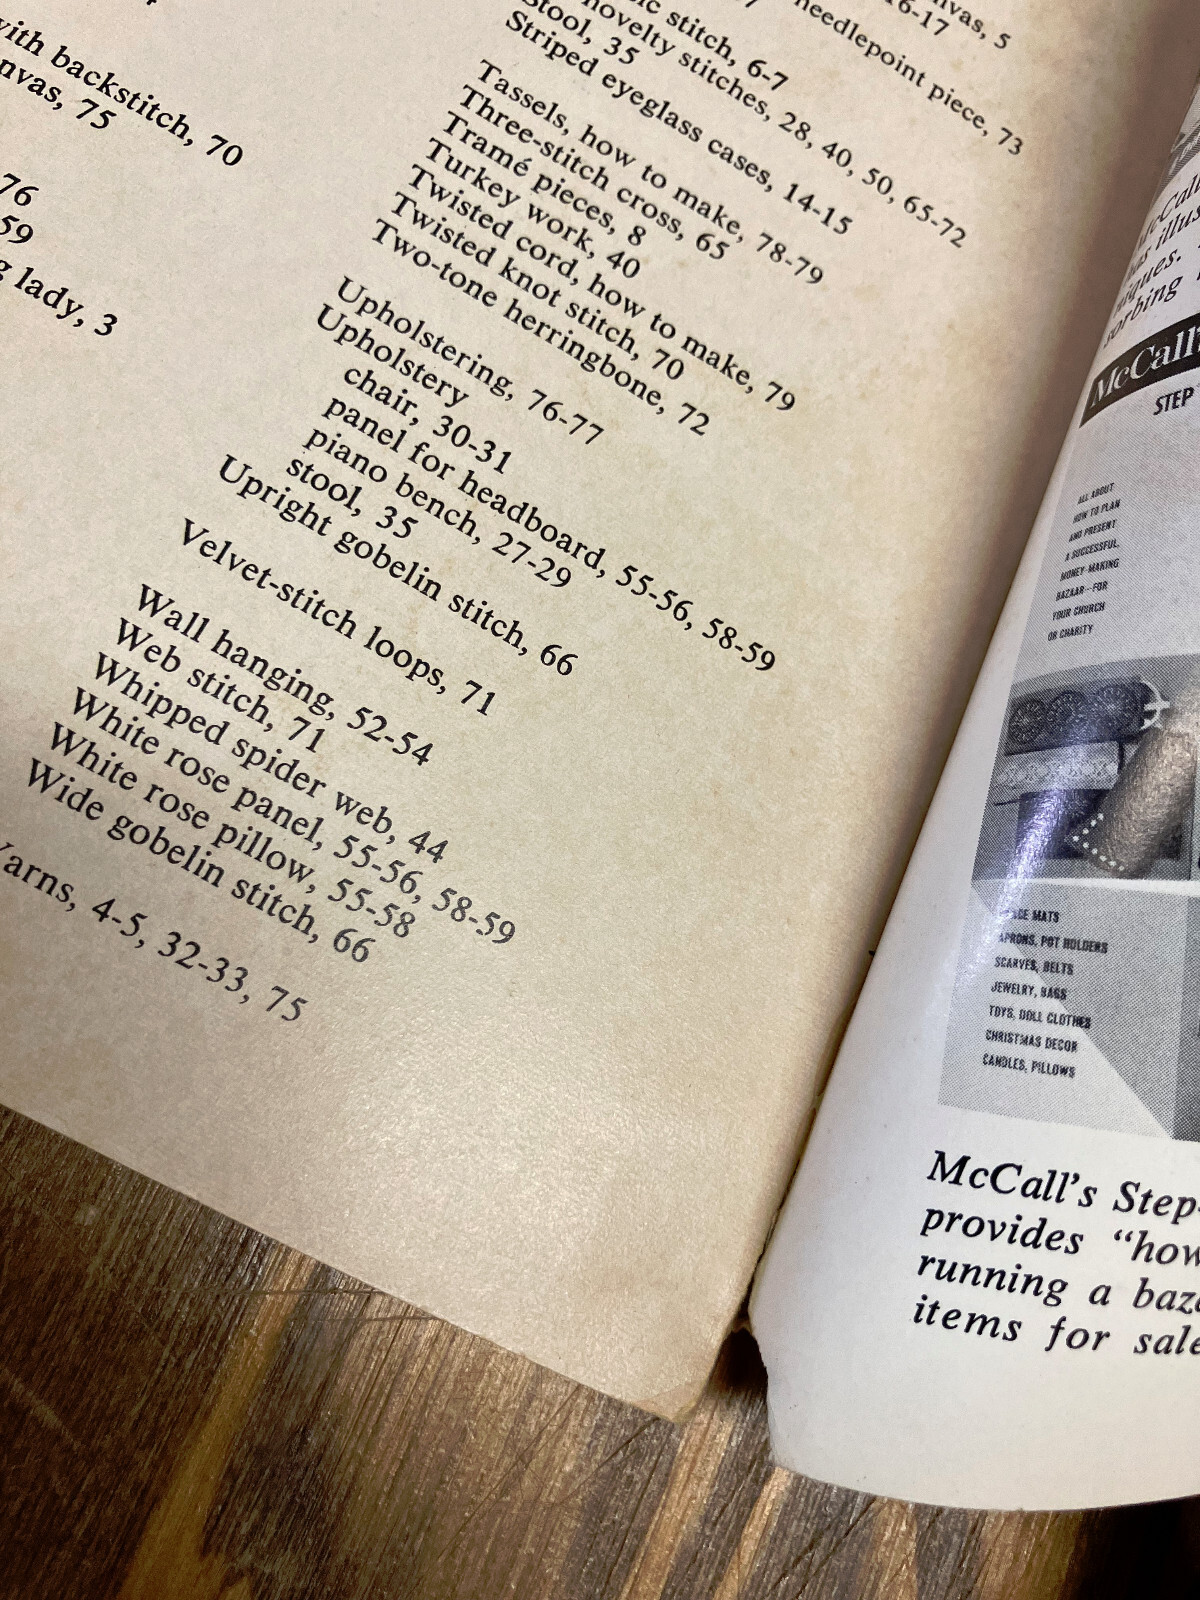 with backstitch, 70
75
76
59
lady, 3
5
16-17
needlepoint piece, 73
stitch, 6-7
novelty stitches, 28, 40, 50, 65-72
Stool, 35
Striped eyeglass cases, 14-15
Tassels, how to make, 78-79
Three-stitch cross, 65
Tramé pieces, 8
Turkey work, 40
Twisted cord, how to make, 79
Twisted knot stitch, 70
Two-tone herringbone, 72
Upholstering, 76-77
Upholstery
chair, 30-31
panel for headboard, 55-56, 58-59
piano bench, 27-29
stool, 35
Upright gobelin stitch, 66
Velvet-stitch loops, 71
Wall hanging, 52-54
Web stitch, 71
Whipped spider web, 44
White rose panel, 55-56, 58-59
White rose pillow, 55-58
Wide gobelin stitch, 66
Yarns, 4-5, 32-33, 75
McCall's
STEP
ALL ABOUT
HOW TO PLAN
AND PRESENT
A SUCCESSFUL,
MONEY-MAKING
BAZAAR—FOR
YOUR CHURCH
OR CHARITY
MATS
APRONS, POT HOLDERS
SCARVES, BELTS
JEWELRY, BAGS
TOYS, DOLL CLOTHES
CHRISTMAS DECOR
CANDLES, PILLOWS
McCall's Step-
provides "how
running a baza
items for sale